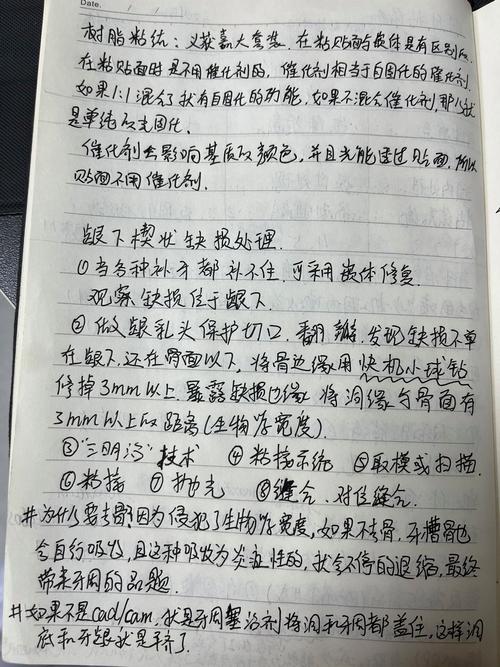 Date.
树脂粘结：义获嘉大套装.在粘贴面与嵌体是有区别的.
在粘贴面时是不用催化剂的，催化剂相当于自固化的催化剂.
如果1:1混合了就有自固化的功能，如果不混合催化剂，那么就
是单纯的光固化.
催化剂会影响基质的颜色，并且光能透过贴面，所以
贴面不用催化剂.
龈下楔状缺损处理.
①当各种补牙都补不住，可采用嵌体修复.
观察缺损位于龈下.
②做龈乳头保护切口，翻瓣，发现缺损不单
在龈下，还在骨面以下，将骨边缘用快机小球钻
修掉3mm以上，暴露缺损边缘，将洞缘与骨面有
3mm以上的距离(生物学宽度).
③"三明治"技术 ④粘接系统 ⑤取模或扫描.
⑥粘接 ⑦抛光 ⑧缝合、对位缝合.
#为什么要去骨?因为侵犯了生物学宽度，如果不去骨，牙槽骨也
会自行吸收，且这种吸收为炎症性的，就会不停的退缩，最终
带来牙周的问题.
#如果不是cad/cam，就是牙周塞治剂将洞和牙周都盖住，这样洞
底和牙龈就是平齐了.